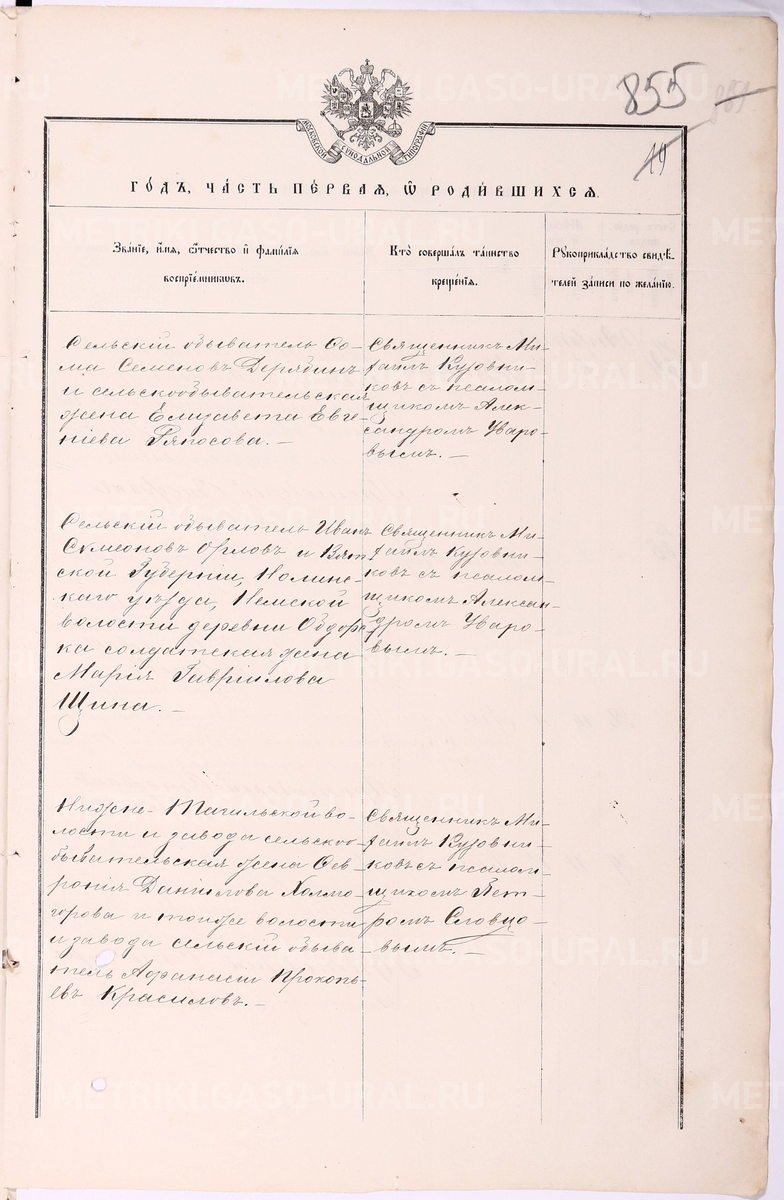 855 —
19
МОСКОВСКОЙ СѴНОДАЛЬНОЙ ТИПОГРАФІИ
ГО́ДЪ, ЧА́СТЬ ПЕ́РВАЯ, Ѽ РОДИ́ВШИХСЯ.
Зва́ніе, и҆́мя, ѻ҆́тчество и҆ фами́лія
воспріе́мникѡвъ.
Кто̀ соверша́лъ та́инство
креще́нія.
Рꙋкоприкла́дство свидѣ́-
телей за́писи по жела́нію.
Сельскій обыватель Ѳо-
ма Семеновъ Дерябинъ
и сельскообывательская
жена Елизавета Евге-
ніева Ряпосова. —
Священникъ Ми-
хаилъ Кузовни-
ковъ съ псалом-
щикомъ Алек-
сандромъ Уваро-
вымъ. —
Сельскій обыватель Иванъ
Сѵмеоновъ Орловъ и Вят-
ской Губерніи, Нолин-
скаго уѣзда, Немской
волости деревни Ободор-
ка солдатская жена
Марія Гавріилова
Щина. —
Священникъ Ми-
хаилъ Кузовни-
ковъ съ псалом-
щикомъ Алексан-
дромъ Уваро-
вымъ. —
Нижне-Тагильской во-
лости и завода сельскоо-
бывательская жена Фев-
ронія Даніилова Холмо-
горова и тойже волости
и завода сельскій обыва-
тель Афанасій Прокопь-
евъ Красиловъ. —
Священникъ Ми-
хаилъ Кузовни-
ковъ съ псалом-
щикомъ Пет-
ромъ Словцо-
вымъ. —
METRIKI.GASO-URAL.RU